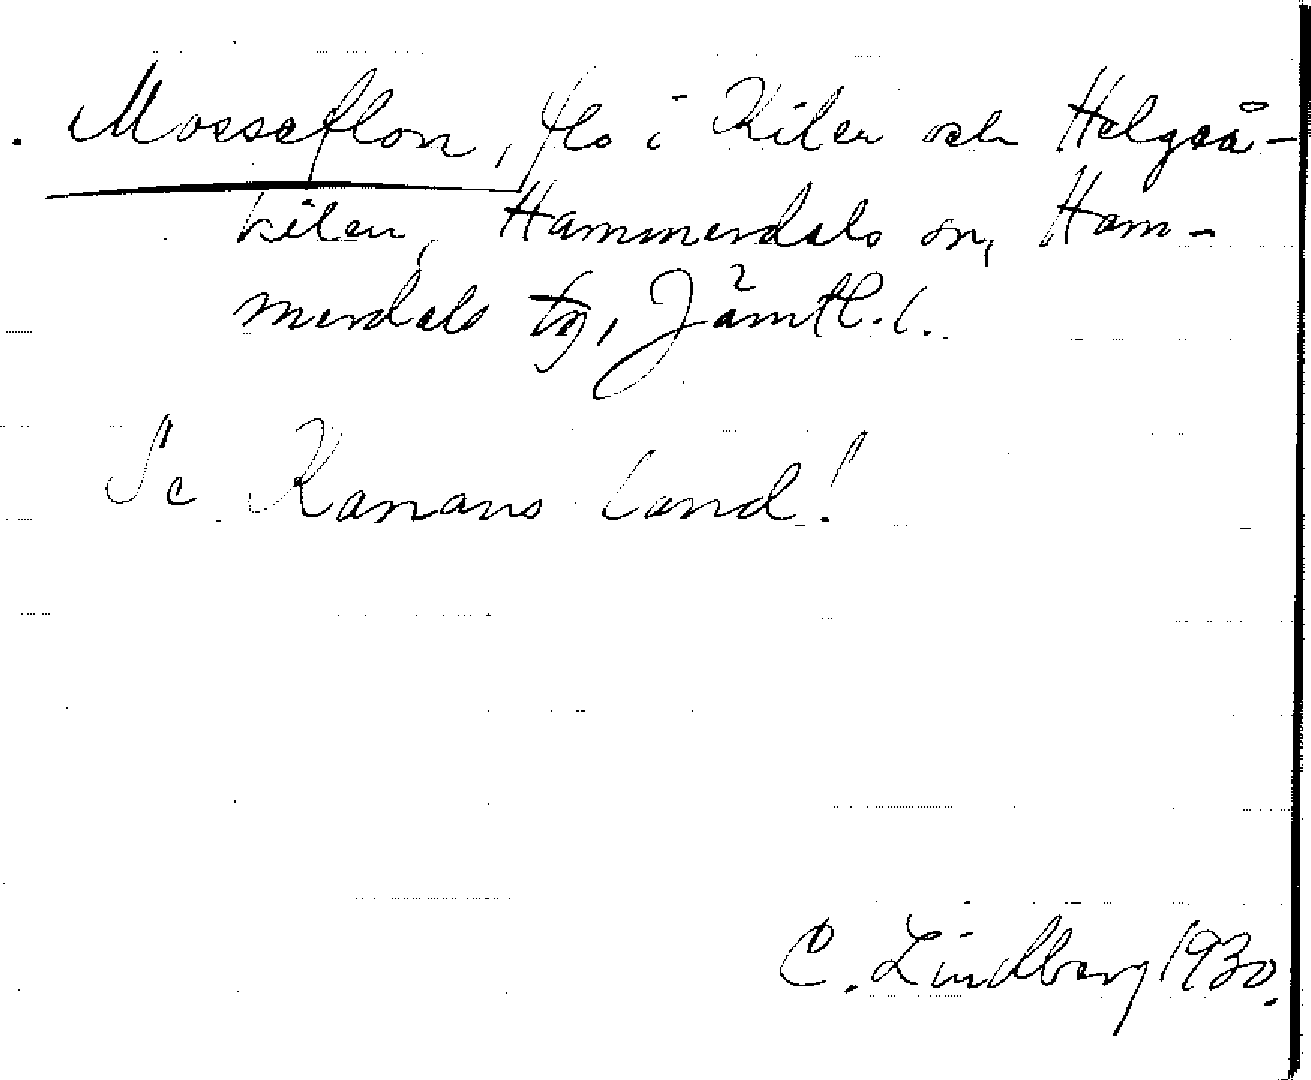 Mosseflon, flo i Kilen och Helgeå-
kilen, Hammerdals sn, Ham-
merdals tg, Jämtl. l.
Se Kanans land!
C. Lindberg 1930.